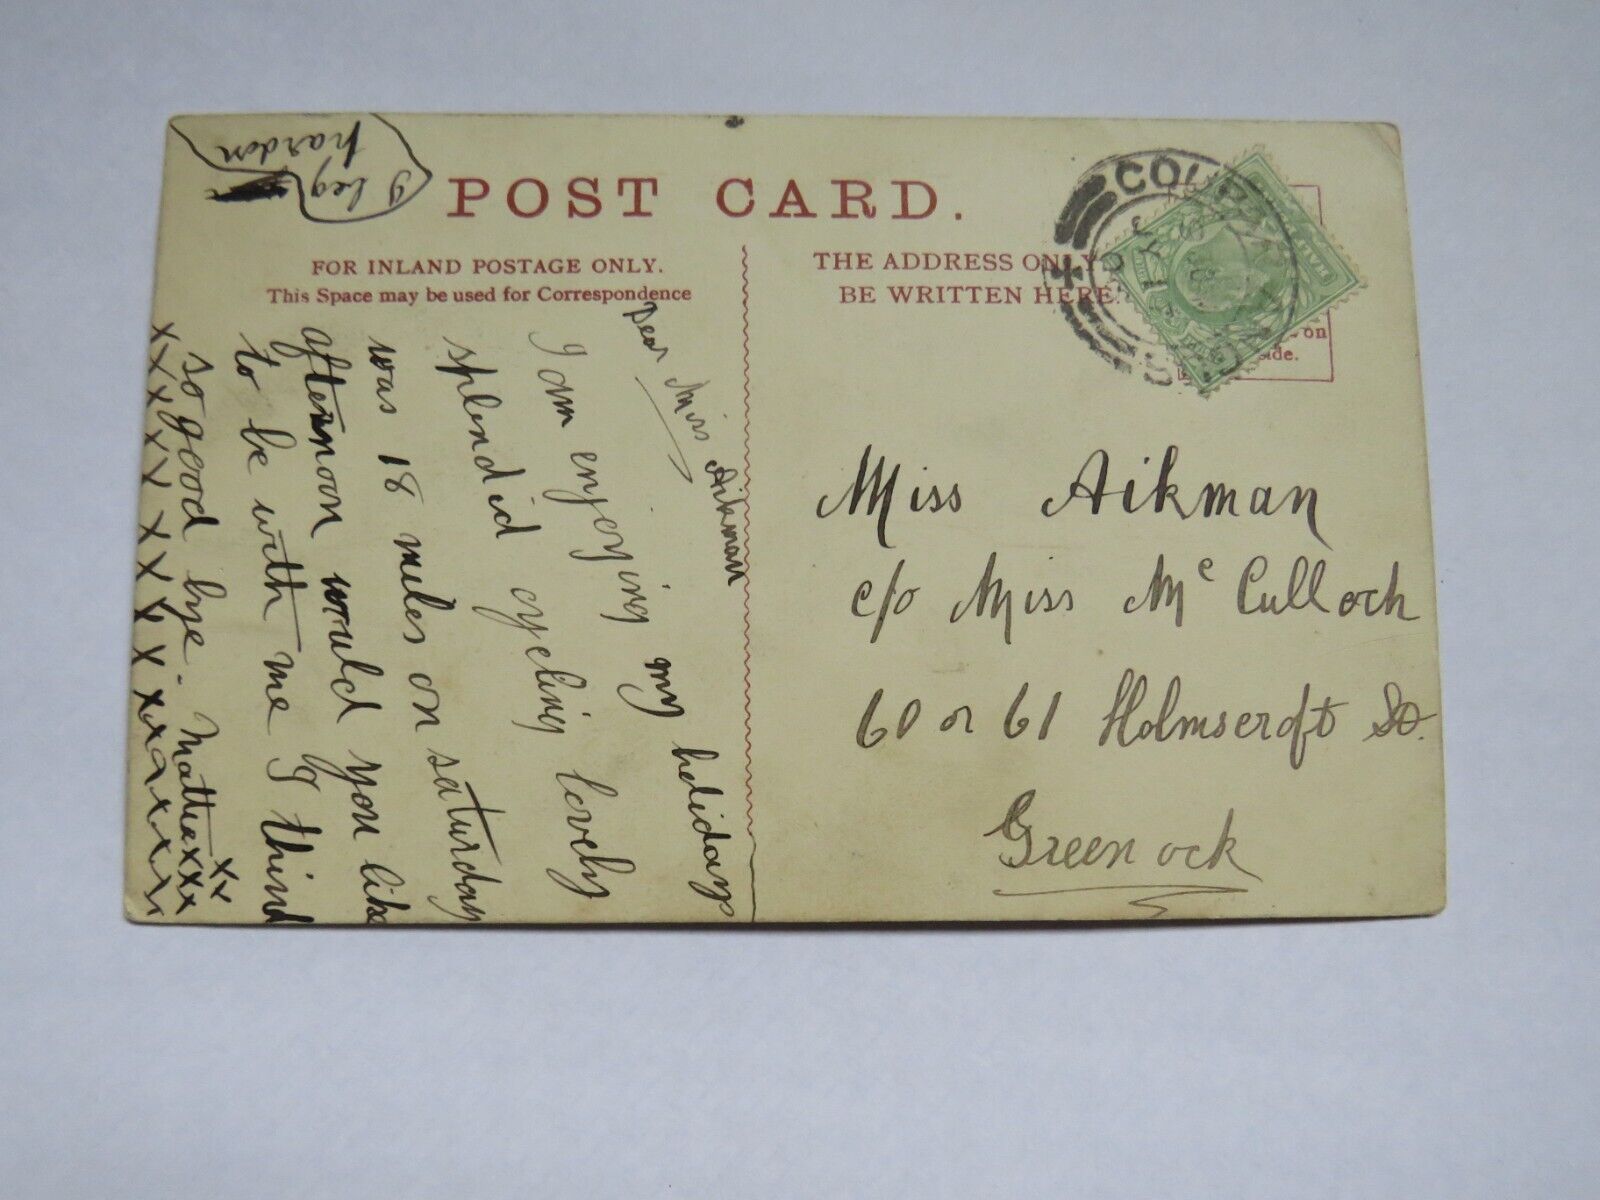 POST CARD.
FOR INLAND POSTAGE ONLY.
This Space may be used for Correspondence
THE ADDRESS ONLY
BE WRITTEN HERE.
on
side.
Dear Miss Aikman
I am enjoying my holidays
splendid cycling lovely
was 18 miles on saturday
afternoon would you like
to be with me I think
so good bye. Mattiexxx
xx
xxxxxxxxxxxxxxxxx
I beg
pardon
Miss Aikman
c/o Miss Mc Culloch
60 or 61 Holmscroft St.
Greenock